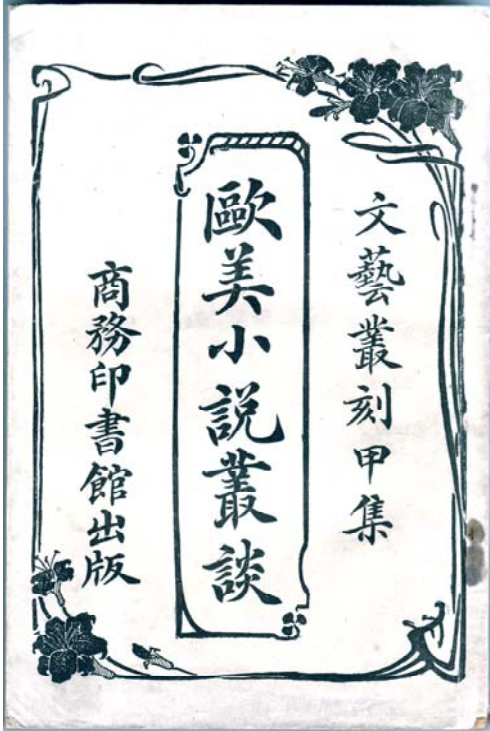 文藝叢刻甲集
歐美小説叢談
商務印書館出版